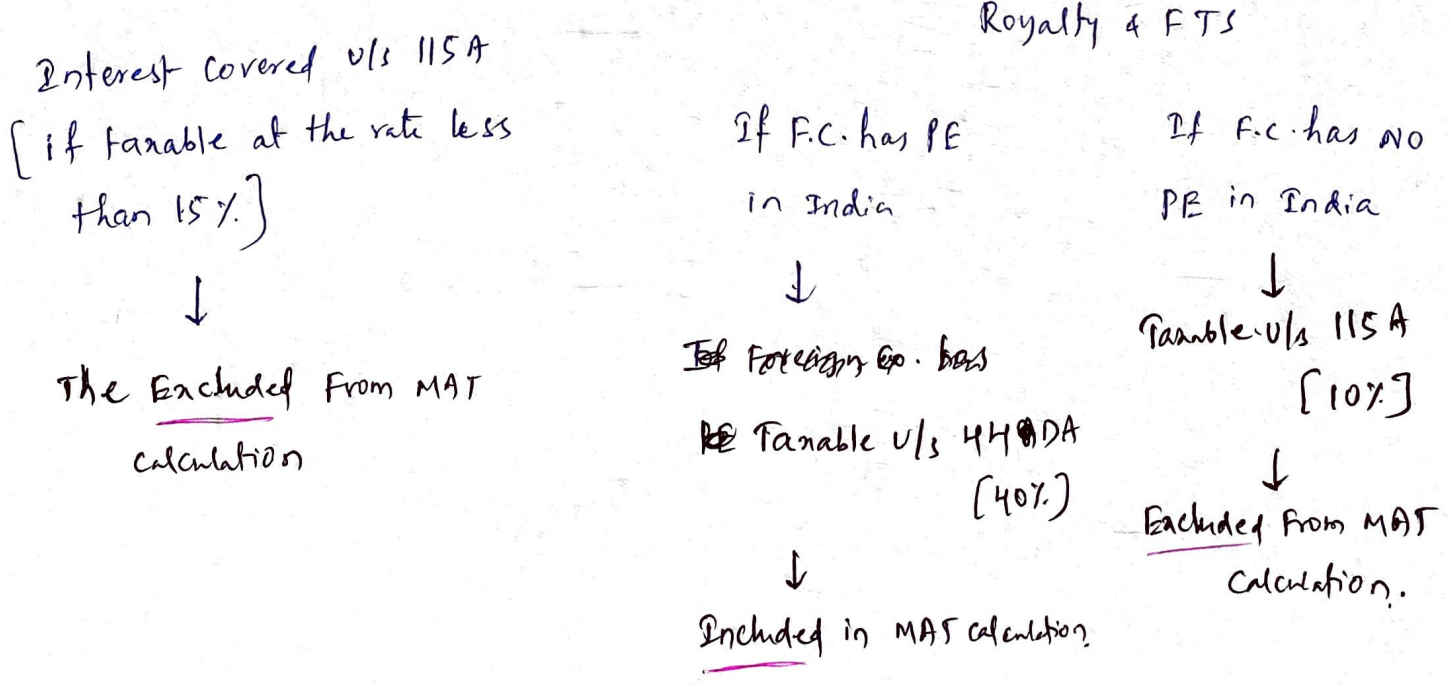 Interest covered u/s 115A
[if taxable at the rate less
than 15%]
↓
The Excluded From MAT
calculation
Royalty & FTS
If F.C. has PE
in India
↓
If Foreign Co. has
PE Taxable u/s 44DA
[40%]
↓
Included in MAT calculation
If F.C. has NO
PE in India
↓
Taxable u/s 115A
[10%]
↓
Excluded From MAT
calculation.